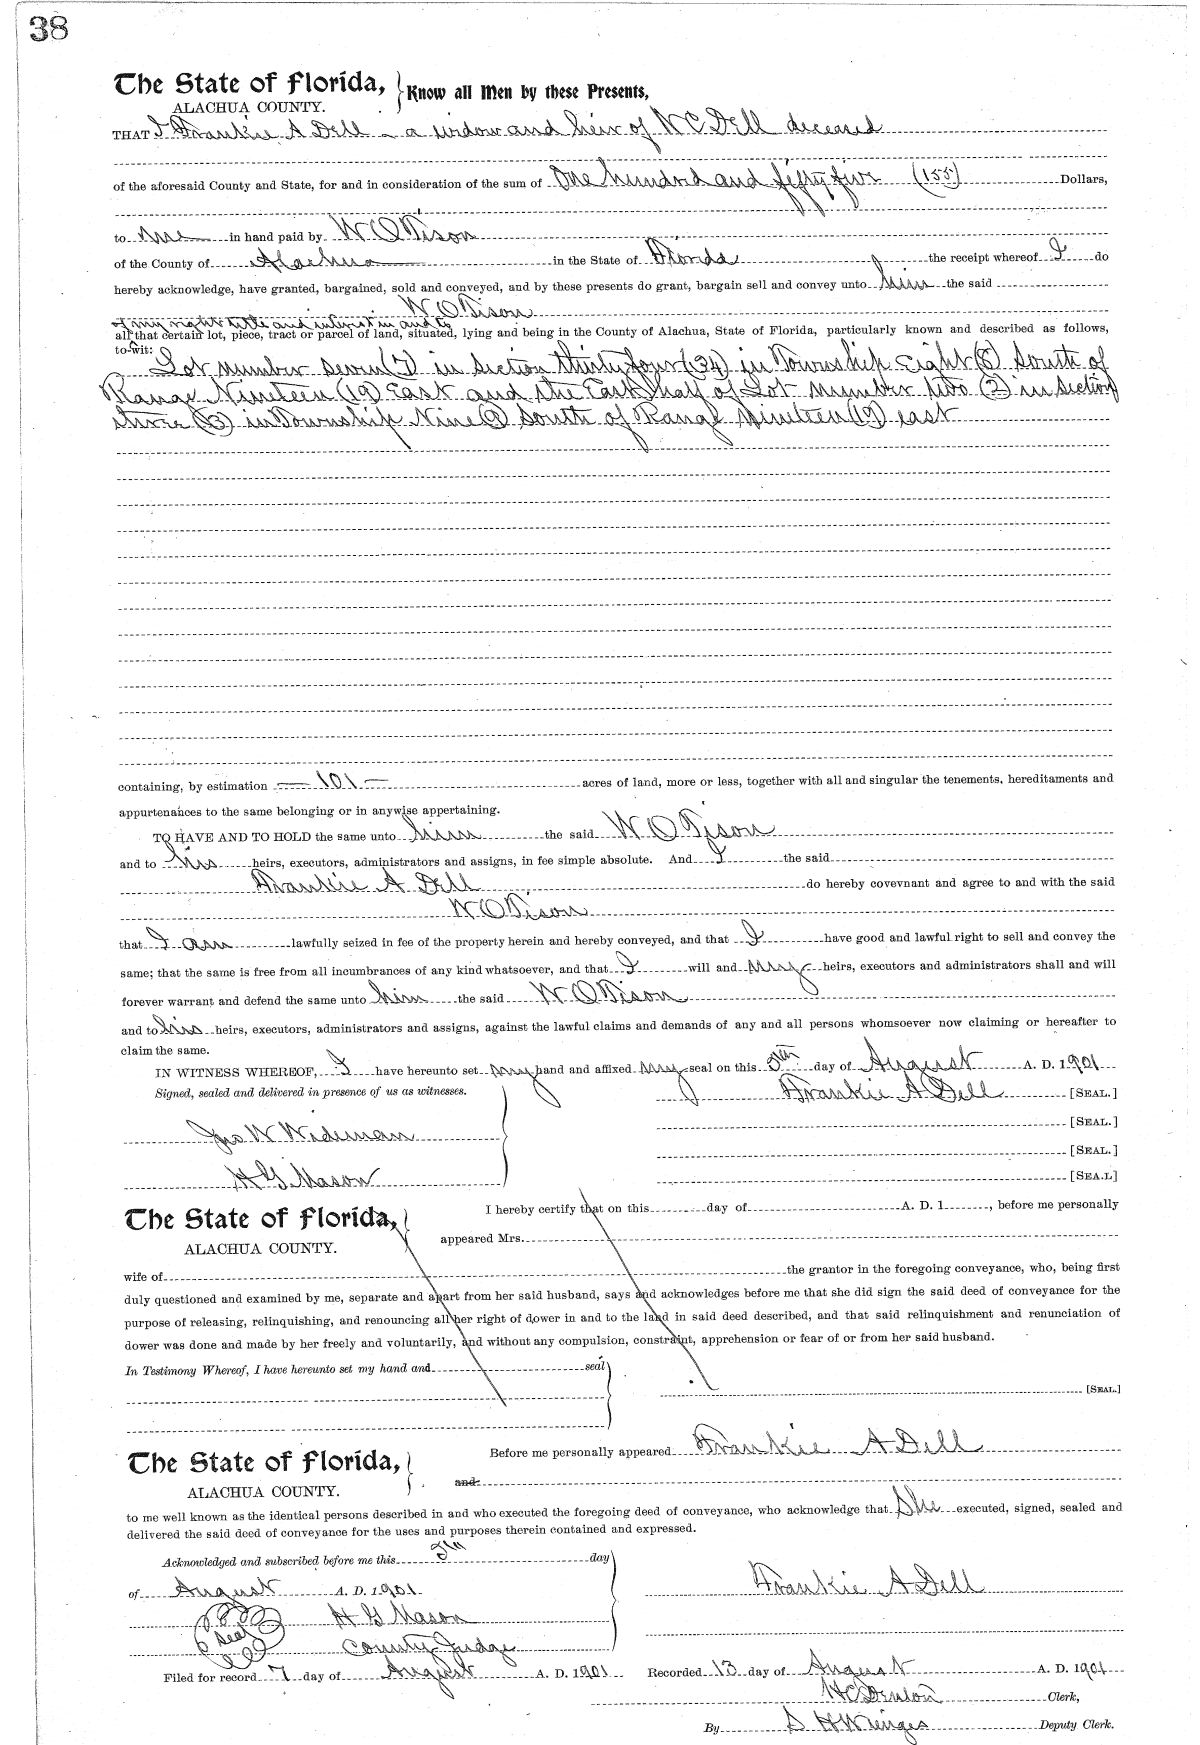 38
The State of Florida, Know all Men by these Presents,
ALACHUA COUNTY.
THAT I Frankie A Dell - a widow and heir of N C Dell deceased
of the aforesaid County and State, for and in consideration of the sum of One hundred and fifty five (155) Dollars,
to me in hand paid by W O Tison
of the County of Alachua in the State of Florida the receipt whereof I do
hereby acknowledge, have granted, bargained, sold and conveyed, and by these presents do grant, bargain sell and convey unto him the said
W O Tison
of my right title and interest in and to
all that certain lot, piece, tract or parcel of land, situated, lying and being in the County of Alachua, State of Florida, particularly known and described as follows,
to-wit: Lot number seven (7) in Section thirty four (34) in Township Eight (8) South of
Range Nineteen (19) East and the East half of Lot number two (2) in Section
three (3) in Township Nine (9) South of Range Nineteen (19) east
containing, by estimation — 101 — acres of land, more or less, together with all and singular the tenements, hereditaments and
appurtenances to the same belonging or in anywise appertaining.
TO HAVE AND TO HOLD the same unto him the said W O Tison
and to his heirs, executors, administrators and assigns, in fee simple absolute. And I the said
Frankie A Dell do hereby covevnant and agree to and with the said
W O Tison
that I am lawfully seized in fee of the property herein and hereby conveyed, and that I have good and lawful right to sell and convey the
same; that the same is free from all incumbrances of any kind whatsoever, and that I will and my heirs, executors and administrators shall and will
forever warrant and defend the same unto him the said W O Tison
and to his heirs, executors, administrators and assigns, against the lawful claims and demands of any and all persons whomsoever now claiming or hereafter to
claim the same.
IN WITNESS WHEREOF, I have hereunto set my hand and affixed my seal on this 5th day of August A. D. 1901
Signed, sealed and delivered in presence of us as witnesses. Frankie A Dell [SEAL.]
[SEAL.]
Jno W Wideman
[SEAL.]
H G Mason [SEA.L]
The State of Florida, I hereby certify that on this day of A. D. 1 , before me personally
ALACHUA COUNTY. appeared Mrs.
wife of the grantor in the foregoing conveyance, who, being first
duly questioned and examined by me, separate and apart from her said husband, says and acknowledges before me that she did sign the said deed of conveyance for the
purpose of releasing, relinquishing, and renouncing all her right of dower in and to the land in said deed described, and that said relinquishment and renunciation of
dower was done and made by her freely and voluntarily, and without any compulsion, constraint, apprehension or fear of or from her said husband.
In Testimony Whereof, I have hereunto set my hand and seal
[SEAL.]
The State of Florida, Before me personally appeared Frankie A Dell
and
ALACHUA COUNTY.
to me well known as the identical persons described in and who executed the foregoing deed of conveyance, who acknowledge that She executed, signed, sealed and
delivered the said deed of conveyance for the uses and purposes therein contained and expressed.
Acknowledged and subscribed before me this 5th day
of August A. D. 1901 Frankie A Dell
Seal H G Mason
County Judge
Filed for record 7 day of August A. D. 1901 Recorded 13 day of August A. D. 1901
H C Denton Clerk,
By S H Wienges Deputy Clerk.